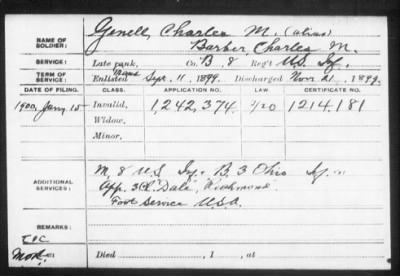 NAME OF SOLDIER: Genell, Charles M. (alias)
Barber, Charles M.
SERVICE: Late rank, Co. B, 8 Reg't U.S. Inf.
TERM OF SERVICE: Enlisted Sept. 11, 1899. Discharged Nov. 21, 1899.
DATE OF FILING. CLASS. APPLICATION NO. LAW. CERTIFICATE NO.
1900, Jany. 15 Invalid, 1,242,374. 1214,181
Widow,
Minor,
ADDITIONAL SERVICES: M, 8 U.S. Inf. B, 3 Ohio Inf.
App. 3 Cl. Dale, Richmond
Foot Service U.S.A.
REMARKS:
Died , 1 , at